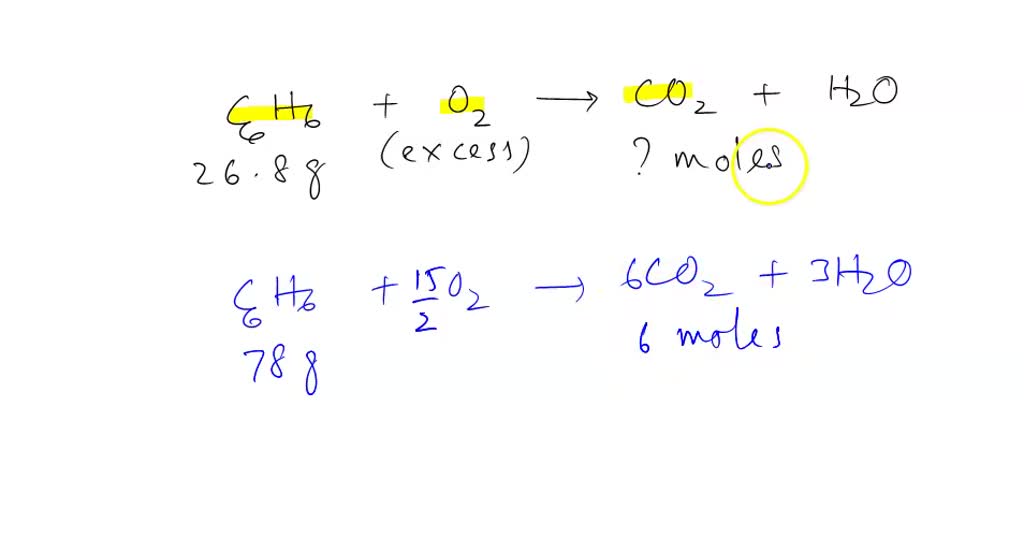 C6H6 + O2 → CO2 + H2O
26.8 g (excess) ? moles
C6H6 + 15/2 O2 → 6CO2 + 3H2O
78 g 6 moles